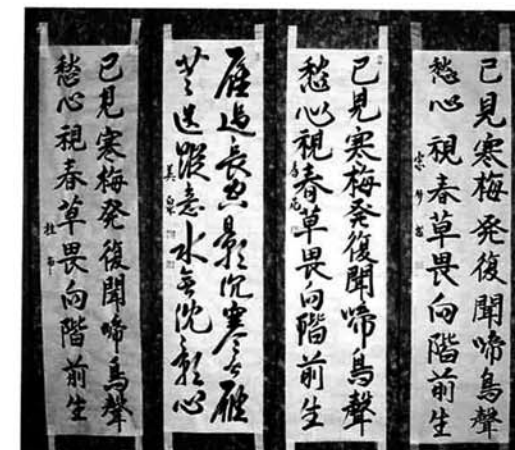 已見寒梅発復聞啼鳥聲
愁心視春草畏向階前生
已見寒梅発復聞啼鳥聲
愁心視春草畏向階前生
雁過長空影沈寒水雁
無遺蹤意水無沈影心
美泉
已見寒梅発復聞啼鳥聲
愁心視春草畏向階前生